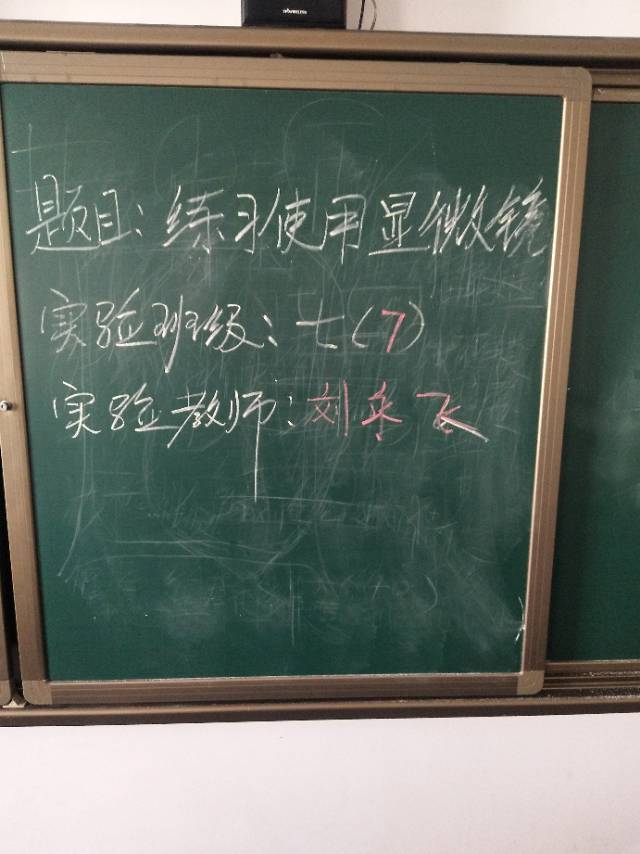 题目:练习使用显微镜
实验班级:七(7)
实验教师:刘冬飞